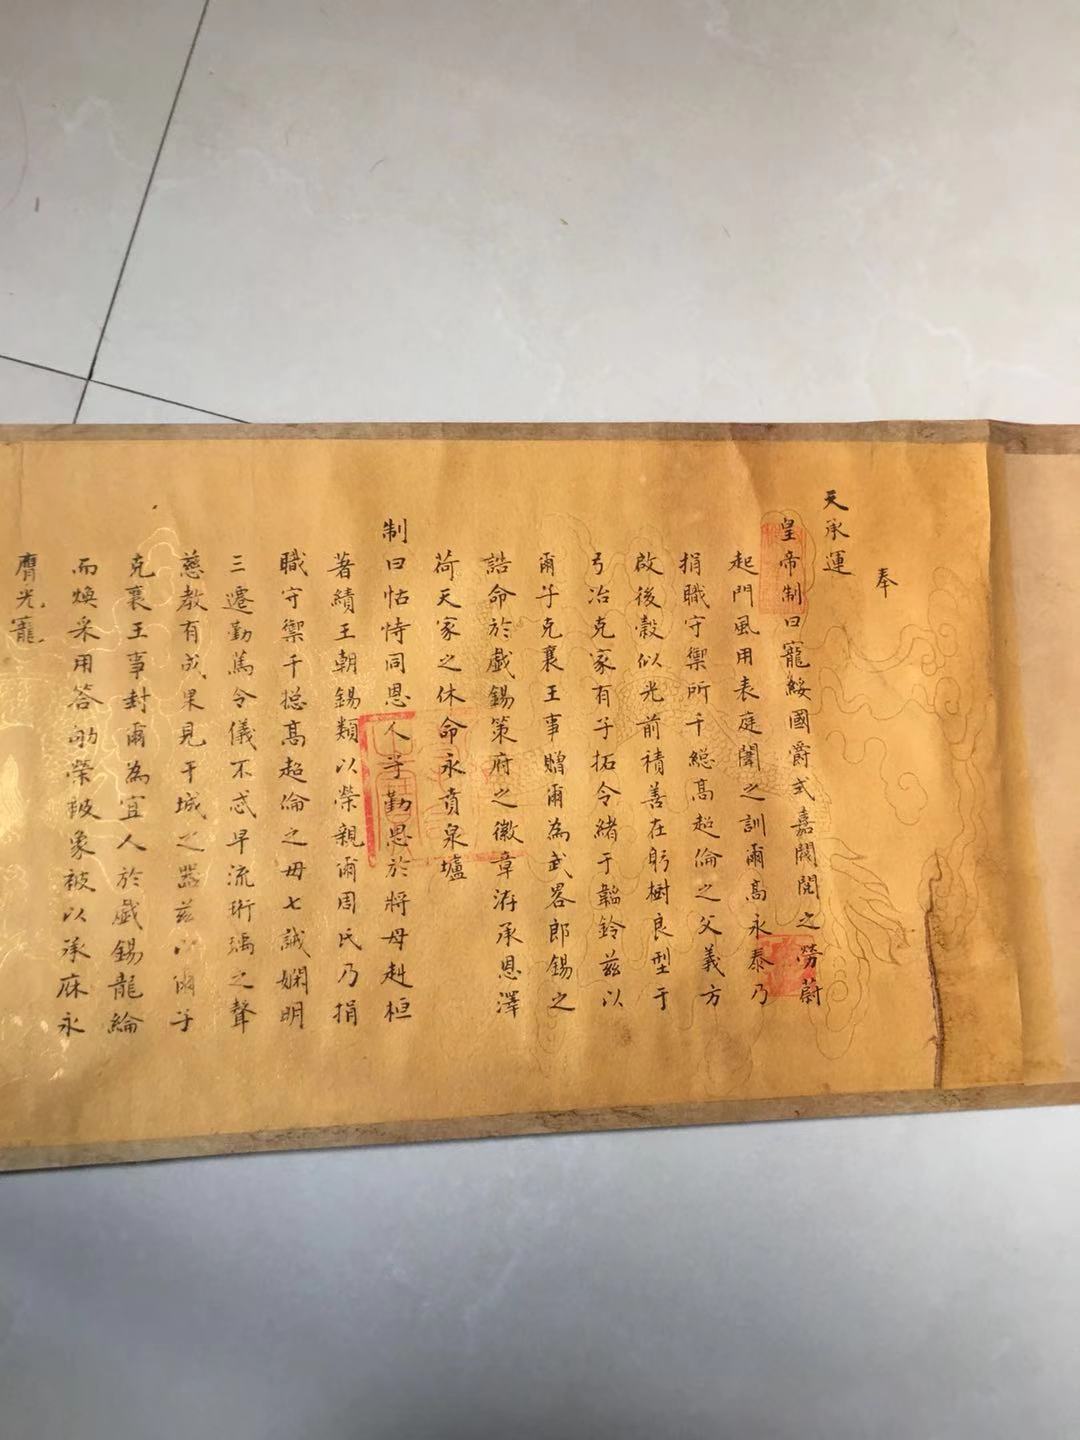 奉
天承運
皇帝制曰寵綏國爵式嘉閥閱之勞蔚
起門風用表庭闈之訓爾高永泰乃
捐職守禦所千總高超倫之父義方
啟後穀似光前積善在躬樹良型于
弓冶克家有子拓令緒于韜鈐茲以
爾子克襄王事贈爾為武畧郎錫之
誥命於戲錫策府之徽章洊承恩澤
荷天家之休命永賁泉壚
制曰怙恃同恩人子勤思於將母赳桓
著績王朝錫類以榮親爾周氏乃捐
職守禦千総高超倫之母七誡嫻明
三遷勤篤令儀不忒早流珩瑀之聲
慈教有成果見干城之器茲以爾子
克襄王事封爾為宜人於戲錫龍綸
而煥采用答劬榮被象被以承庥永
膺光寵